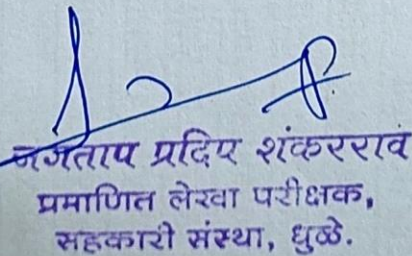 जगताप प्रदिप शंकरराव
प्रमाणित लेखा परीक्षक,
सहकारी संस्था, धुळे.